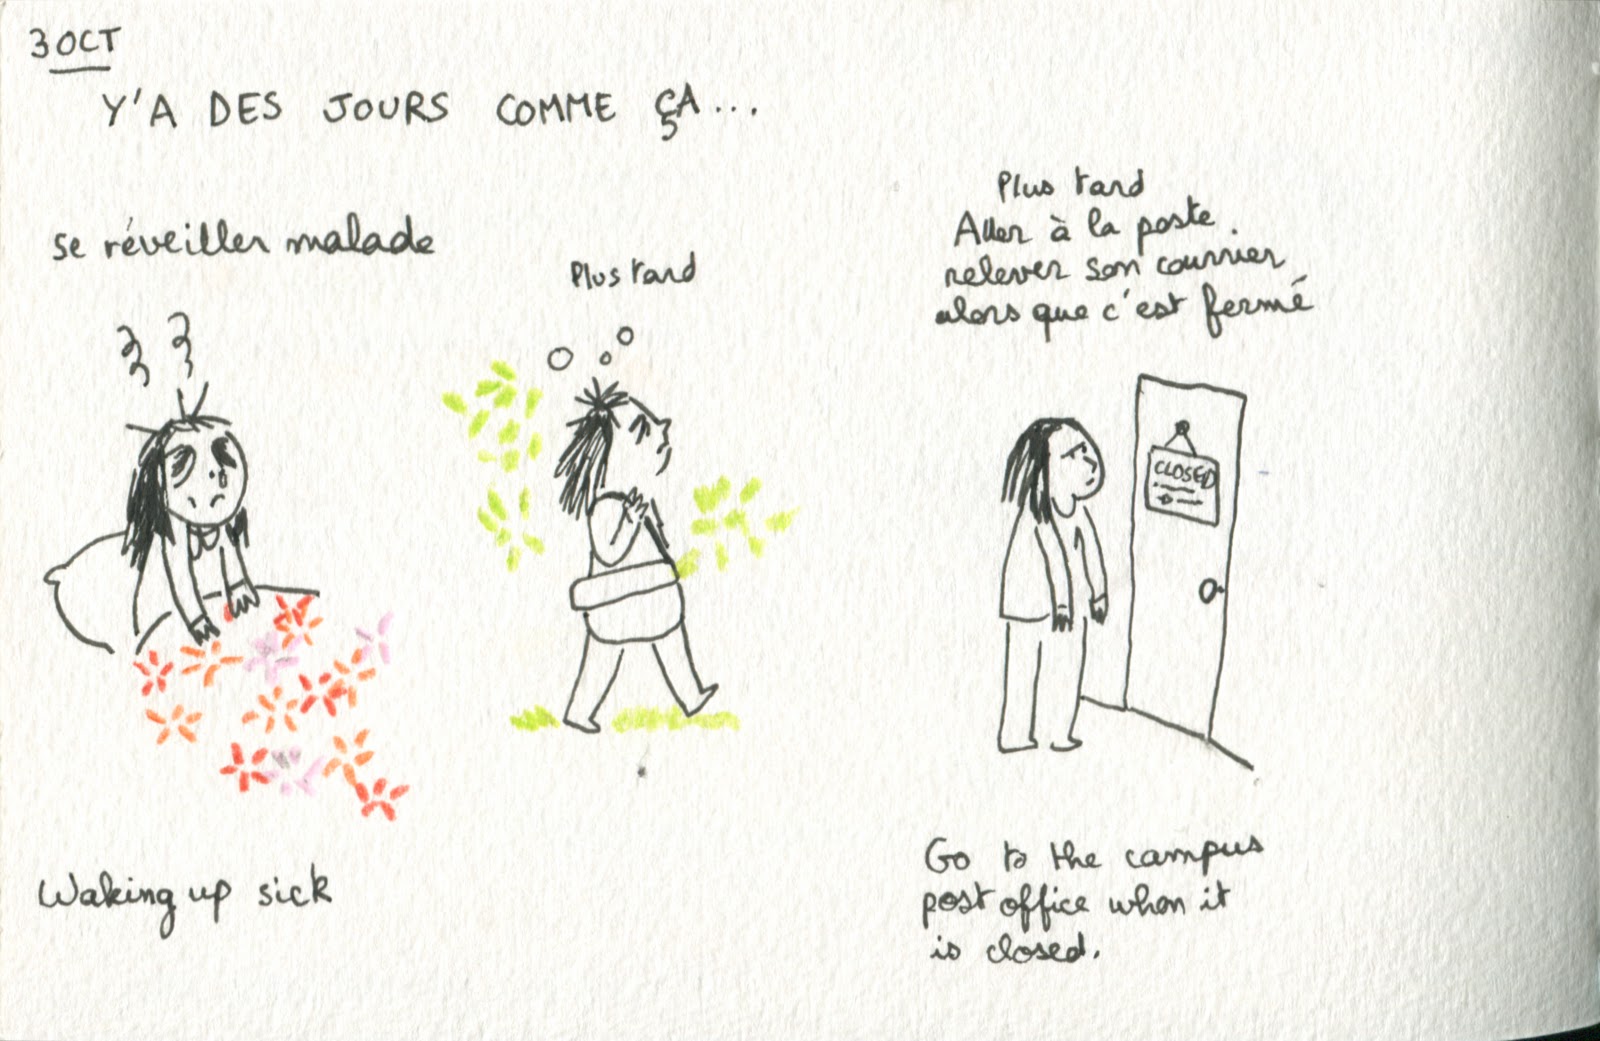 3 OCT
Y'A DES JOURS COMME ÇA...
se réveiller malade
Waking up sick
Plus tard
Plus tard
Aller à la poste
relever son courrier
alors que c'est fermé
CLOSED
Go to the campus
post office when it
is closed.